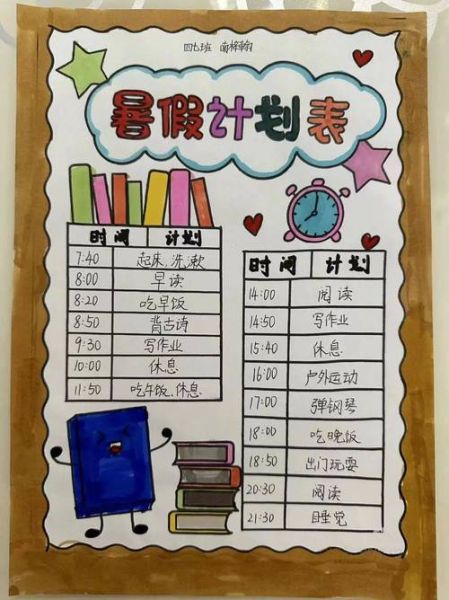 四七班
暑假计划表
时间 计划
7:40 起床,洗漱
8:00 早读
8:20 吃早饭
8:50 背古诗
9:30 写作业
10:00 休息
11:50 吃午饭、休息
时间 计划
14:00 阅读
14:50 写作业
15:40 休息
16:00 户外运动
17:00 弹钢琴
18:00 吃晚饭
18:50 出门玩耍
20:30 阅读
21:30 睡觉